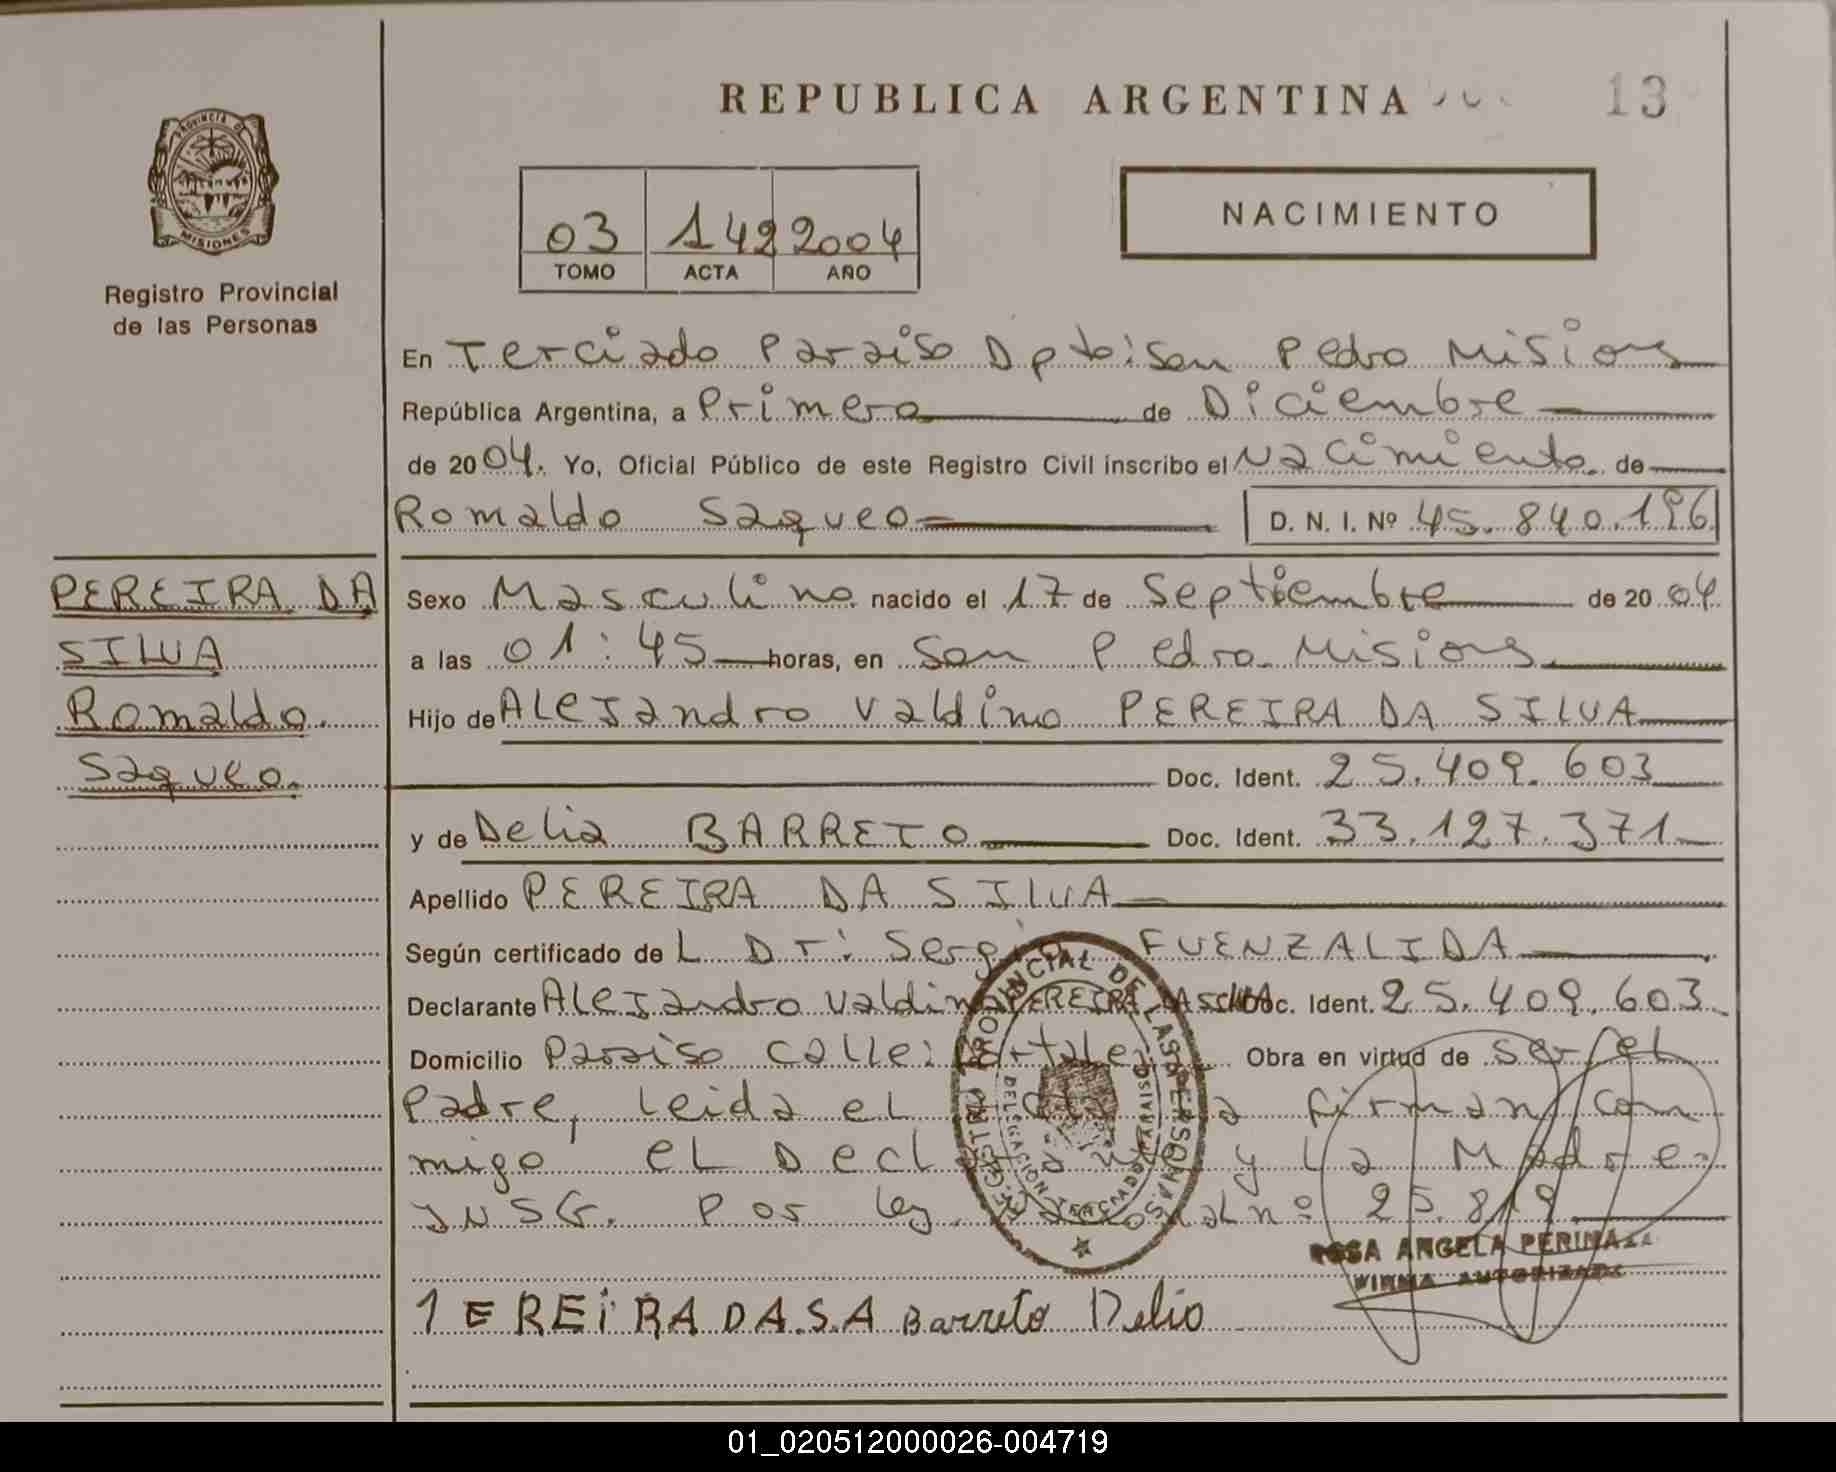 REPUBLICA ARGENTINA
13
PROVINCIA DE
MISIONES
Registro Provincial
de las Personas
03 142 2004
TOMO ACTA AÑO
NACIMIENTO
En Terciado Paraiso Dpto: San Pedro Misions
República Argentina, a Primero de Diciembre
de 2004. Yo, Oficial Público de este Registro Civil inscribo el Nacimiento de
Romaldo Saqueo D. N. I. Nº 45.840.196
PEREIRA DA
SILVA
Romaldo
Saqueo.
Sexo Masculino nacido el 17 de Septiembre de 2004
a las 01:45 horas, en San Pedro Misions
Hijo de Alejandro Valdino PEREIRA DA SILVA
Doc. Ident. 25.409.603
y de Delia BARRETO Doc. Ident. 33.127.371
Apellido PEREIRA DA SILVA
Según certificado de L Dr: Sergio FUENZALIDA
Declarante Alejandro Valdino PEREIRA DA SILVA Doc. Ident. 25.409.603
Domicilio Paraiso Calle: Obra en virtud de ser el
Padre, leida el firman con
migo el y la Madre
INSG. Por ley nº 25.819
REGISTRO PROVINCIAL DE LAS PERSONAS
DELEGACION TERCIADO PARAISO
ROSA ANGELA
FIRMA AUTORIZADA
1EREiRA DA.S.A Barreto Delio
01_020512000026-004719